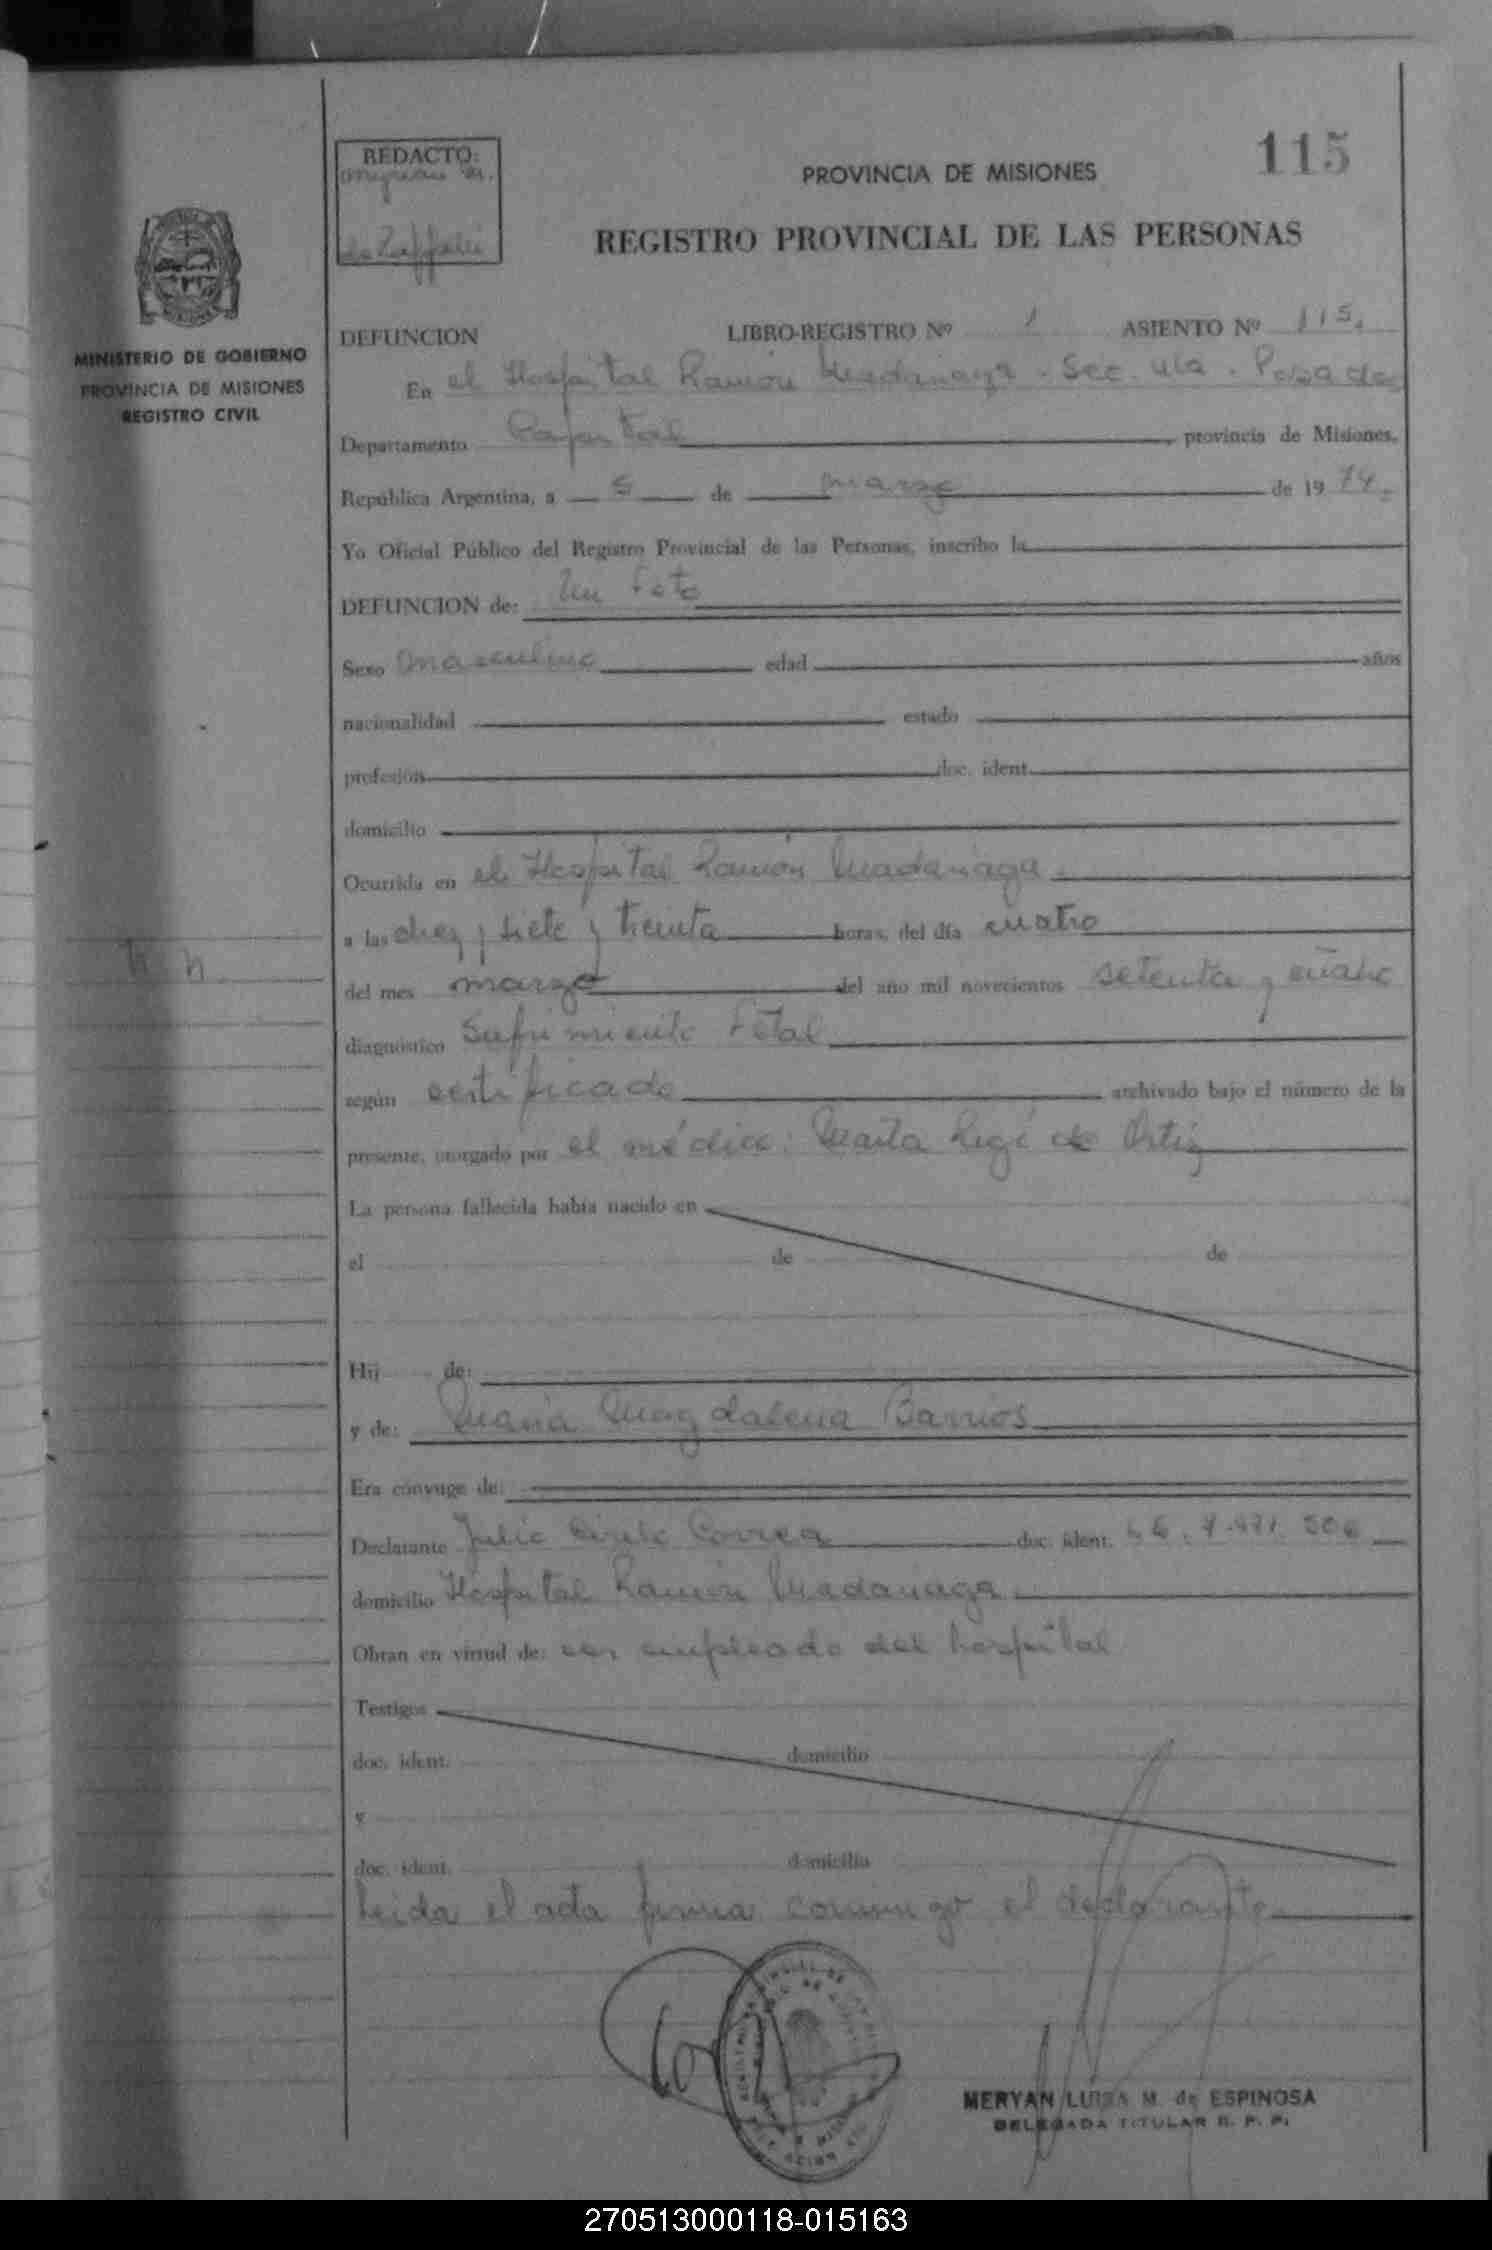 115
REDACTO:
PROVINCIA DE MISIONES
REGISTRO PROVINCIAL DE LAS PERSONAS
MINISTERIO DE GOBIERNO
PROVINCIA DE MISIONES
REGISTRO CIVIL
DEFUNCION LIBRO-REGISTRO Nº 1 ASIENTO Nº 115.
En el Hospital Ramón Madariaga - Sec. 4ta. Posadas
Departamento Capital provincia de Misiones,
República Argentina, a 5 de marzo de 1974.
Yo Oficial Público del Registro Provincial de las Personas, inscribo la
DEFUNCION de: Un Feto
Sexo masculino edad años
nacionalidad estado
profesión doc. ident.
domicilio
Ocurrida en el Hospital Ramón Madariaga.
a las diez y siete y treinta horas, del día cuatro
n n
del mes marzo del año mil novecientos setenta y cuatro
diagnóstico Sufrimiento Fetal
según certificado archivado bajo el número de la
presente, otorgado por el médico: Marta de Ortiz
La persona fallecida había nacido en
el de de
Hij de:
y de: Maria Magdalena Barrios
Era cónyuge de:
Declarante Julio Correa doc. ident.
domicilio Hospital Ramón Madariaga
Obran en virtud de: ser empleado del hospital
Testigos
doc. ident. domicilio
y
doc. ident. domicilio
Leida el acta firma conmigo el declarante
MERYAN LUISA M. de ESPINOSA
DELEGADA TITULAR R. P. P.
270513000118-015163